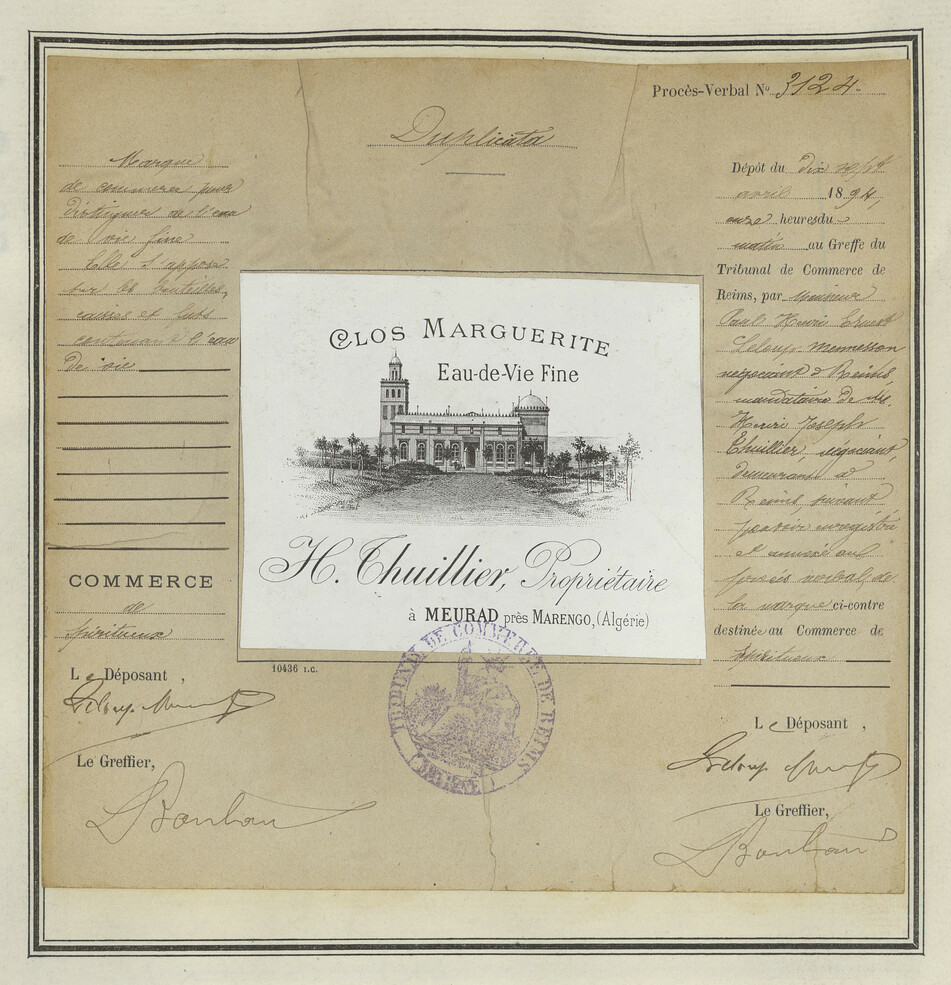 Procès-Verbal No 3124.
Duplicata
Marque
de commerce pour
distinguer de l'eau
de vie fine
Elle s'appose
sur les bouteilles,
caisses et futs
contenant l'eau
de vie
COMMERCE
de
spiritueux
Le Déposant,
Le Greffier,
CLOS MARGUERITE
Eau-de-Vie Fine
H. Thuillier, Propriétaire
à MEURAD près MARENGO, (Algérie)
10436 I.C.
TRIBUNAL DE COMMERCE DE REIMS
(MARNE)
Dépôt du dix sept
avril 1894,
onze heures du
matin au Greffe du
Tribunal de Commerce de
Reims, par Monsieur
Paul Henri Ernest
Leloup Mennesson
négociant à Reims,
mandataire de M.
Henri Joseph
Thuillier négociant,
demeurant à
Reims suivant
pouvoir enregistré
et annexé au
procès verbal de
la marque ci-contre
destinée au Commerce de
spiritueux
Le Déposant,
Le Greffier,